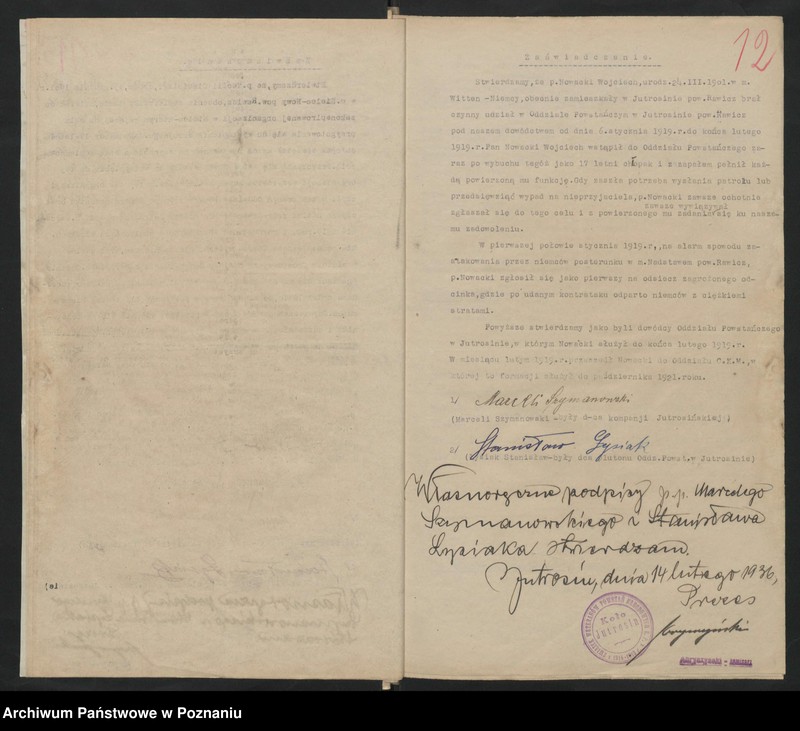 12
Zaświadczenie.
Stwierdzamy, że p. Nowacki Wojciech, urodz. 24.III.1901. w m.
Witten-Niemcy, obecnie zamieszkały w Jutrosinie pow. Rawicz brał
czynny udział w Oddziale Powstańczym w Jutrosinie pow. Rawicz
pod naszem dowództwem od dnia 6. stycznia 1919. r. do końca lutego
1919. r. Pan Nowacki Wojciech wstąpił do Oddziału Powstańczego za-
raz po wybuchu tegóż jako 17 letni chłopak i z zapałem pełnił każ-
dą powierzoną mu funkcję. Gdy zaszła potrzeba wysłania patrolu lub
przedsięwziąć wypad na nieprzyjaciela, p. Nowacki zawsze ochotnie
zawsze wywiązywał
zgłaszał się do tego celu i z powierzonego mu zadania się ku nasze-
mu zadowoleniu.
W pierwszej połowie stycznia 1919. r., na alarm spowodu za-
atakowania przez niemców posterunku w m. Nadstawem pow. Rawicz,
p. Nowacki zgłosił się jako pierwszy na odsiecz zagrożonego od-
cinka, gdzie po udanym kontrataku odparto niemców z ciężkiemi
stratami.
Powyższe stwierdzamy jako byli dowódcy Oddziału Powstańczego
w Jutrosinie, w którym Nowacki służył do końca lutego 1919. r.
W miesiącu lutym 1919. r. przeszedł Nowacki do Oddziału C.K.M., w
której to formacji służył do października 1921. roku.
1/ Marceli Szymanowski
(Marceli Szymanowski -były d-ca kompanji Jutrosińskiej)
2/ Stanisław Łysiak
Stanisław-były dca plutonu Oddz. Powst. w Jutrosinie)
Własnoręczne podpisy p.p. Marcelego
Szymanowskiego i Stanisława
Łysiaka stwierdzam.
Jutrosin, dnia 14 lutego 1936,
Prezes
Koło
Jutrosin
Archiwum Państwowe w Poznaniu